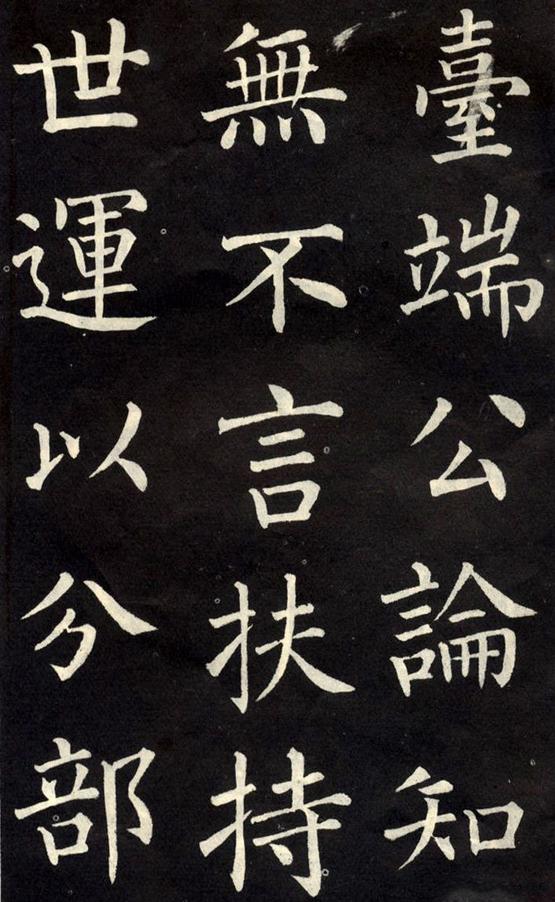 臺端公論知
無不言扶持
世運以分部